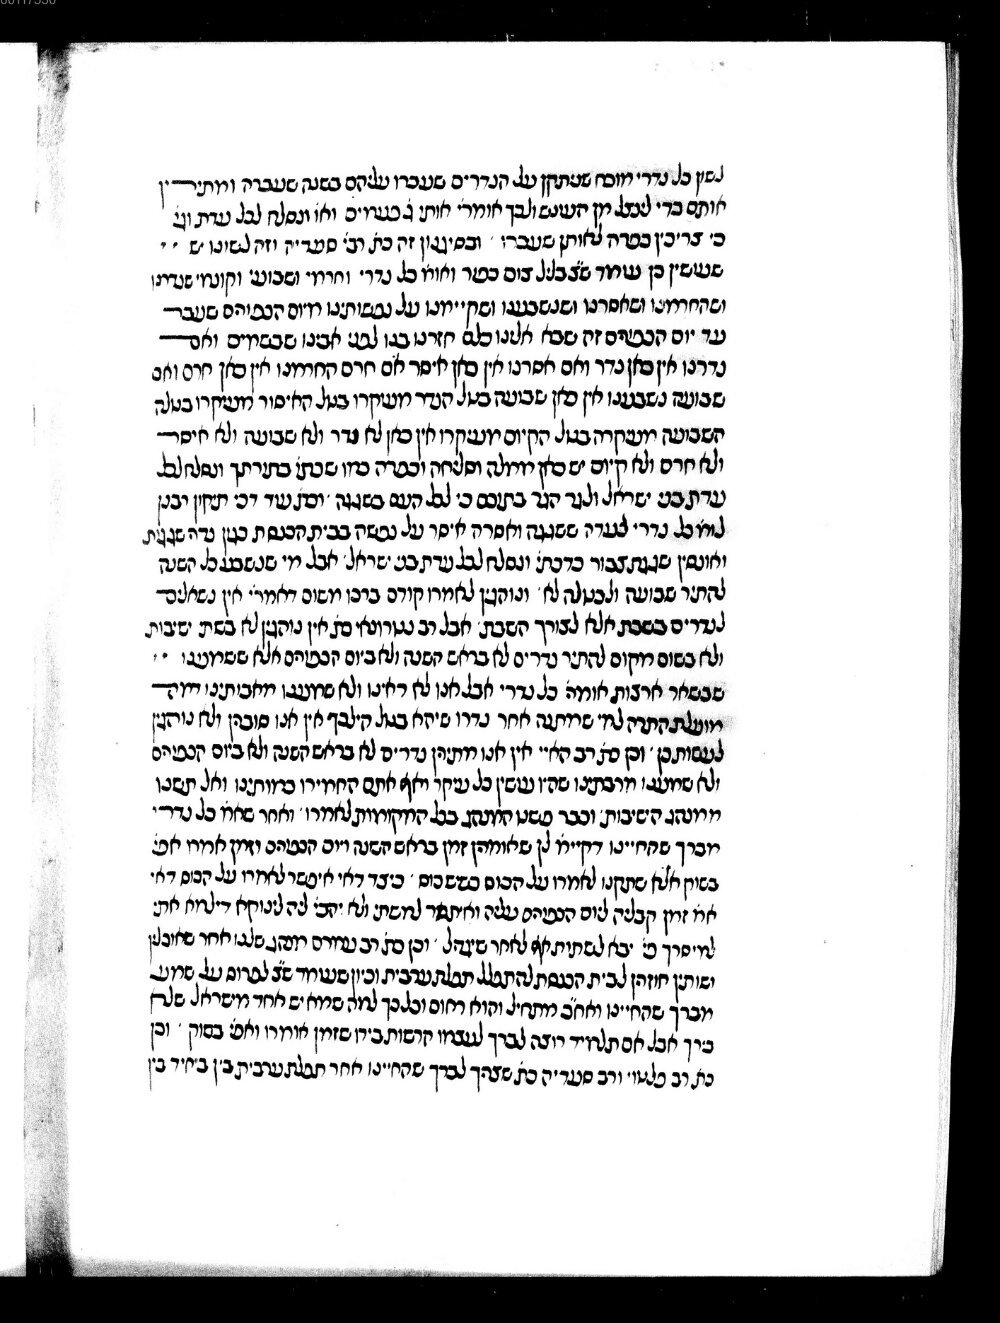 לשון כל נדרי מוכח שנתקן על הנדרים שעברו עליהם בשנה שעברה ומתירין
אותם כדי לינצל מן העונש ולכך אומרי' אותו ג' פעמים ואו' ונסלח לכל עדת וגו'
כי צריכין כפרה לאותן שעברו' ובסיגנון זה כת' רבי' סעדיה וזה לשונו יש
שעושין כן עומד ש"צ בליל צום כפור ואומ' כל נדרי וחרמי ושבועי וקונמי שנדרנו
ושהחרמנו ושאסרנו ושנשבענו ושקיימנו על נפשותינו מיום הכפורים שעבר
עד יום הכפורים זה שבא אלינו כלם חזרנו בנו לפני אבינו שבשמים ואם
נדרנו אין כאן נדר ואם אסרנו אין כאן איסר אם חרם החרמנו אין כאן חרם ואם
שבועה נשבענו אין כאן שבועה בטל הנדר מעיקרו בטל האיסור מעיקרו בטלה
השבועה מעיקרה בטל הקיום מעיקרו אין כאן לא נדר ולא שבועה ולא איסר
ולא חרם ולא קיום יש כאן מחילה וסליחה וכפרה כמו שכתו' בתורתך ונסלח לכל
עדת בני ישראל ולגר הגר בתוכם כי לכל העם בשגגה' וכת' עוד דכי תיקון רבנן
לומ' כל נדרי לעדה ששגגה ואסרה איסר על נפשה בבית הכנסת כגון גדה שגגות
ואונסין שגגת צבור כדכתי' ונסלח לכל עדת בני ישראל' אבל מי שנשבע כל השנה
להתיר שבועה ולבטלה לא' ונוהגין לאמרו קודם ברכו משום דאמרי' אין נשאלים
לנדרים בשבת אלא לצורך השבת' אבל רב נטרונאי כת' אין נוהגין לא בשתי ישיבות
ולא בשום מקום להתיר נדרים לא בראש השנה ולא ביום הכפורים אלא ששמענו
שבשאר ארצות אומרי' כל נדרי אבל אנו לא ראינו ולא שמענו מאבותינו ומה
מועלת התרה למי שמתנה אחר נדרו שיהא בטל קילקף אין אנו סוברין ולא נוהגין
לעשות כן' וכן כת' רב האיי אין אנו מתירין נדרים לא בראש השנה ולא ביום הכפורים
ולא שמענו מרבותינו שהיו עושין כל עיקר ואף אתם החמירו כמותינו ואל תשנו
ממנהג הישיבות' וכבר פשט המנהג בכל המקומות לאמרו' ואחר שאומ' כל נדרי
מברך שהחיינו דקיימ' לן שאומרין זמן בראש השנה ויום הכפורים וזמן אמרו אפי'
בשוק אלא שתקנו לאמרו על הכוס כשיש כוס' כיצד דאי איפשר לאמרו על הכוס דאי
אמ' זמן קבליה ליום הכפורים עליה ואיתסר למשתי ולא יהבי' ליה לינוקא דילמא אתי
למיסרך כי' יבא לשתות אף לאחר שיגדל' וכן כת' רב עמרם מנהג שלנו אחר שאוכלין
ושותין חוזרין לבית הכנסת להתפלל תפלת ערבית וכיון שעומד ש"צ לפרוס על שמע
מברך שהחיינו ואח"כ מתחיל והוא רחום וכל כך למה שמא יש אחד מישראל שלא
בירך אבל אם תלמיד רוצה לברך לעצמו הרשות בידו שזמן אומרו ואפי' בשוק' וכן
כת' רב פלטוי ורב סעדיה כת' שצריך לברך שהחיינו אחר תפלת ערבית בין ביחיד בין